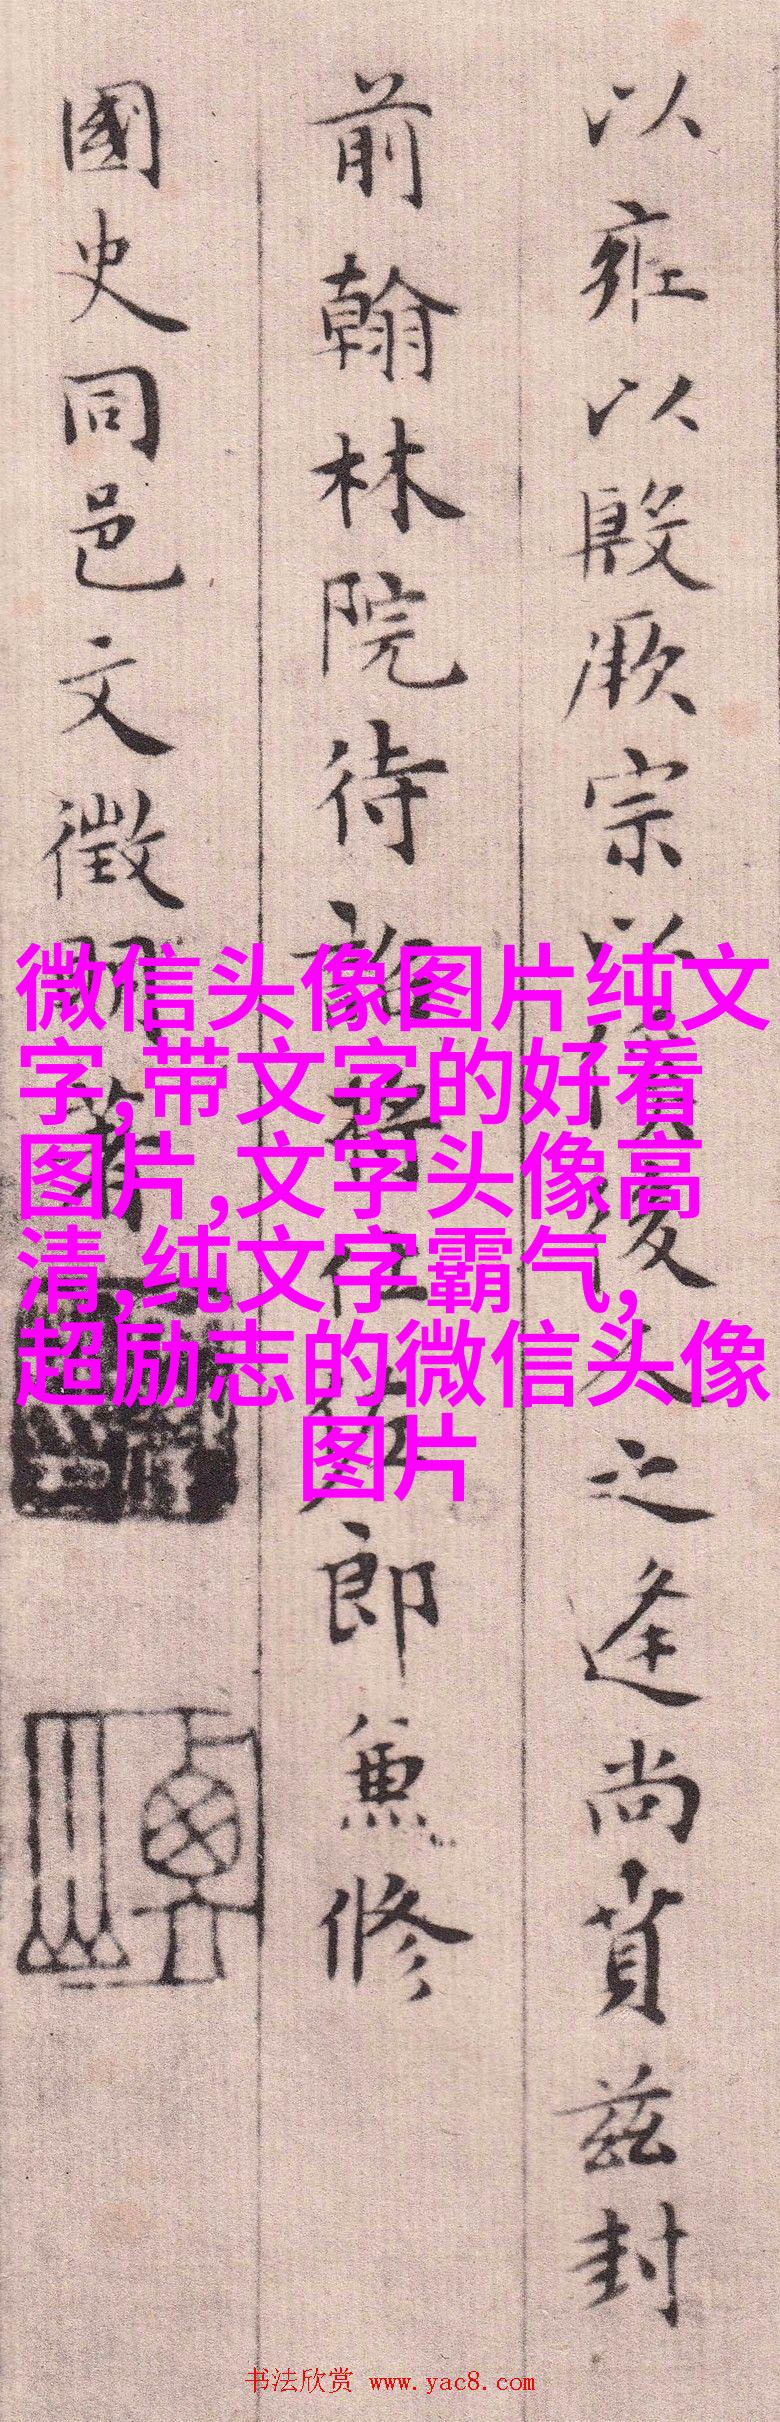 以雍以殷厥宗以後人之逢尚賁茲封
前翰林院待詔將仕佐郎兼修
國史同邑文徵明
微信头像图片纯文
字,带文字的好看
图片,文字头像高
清,纯文字霸气,
超励志的微信头像
图片
书法欣赏 www.yac8.com